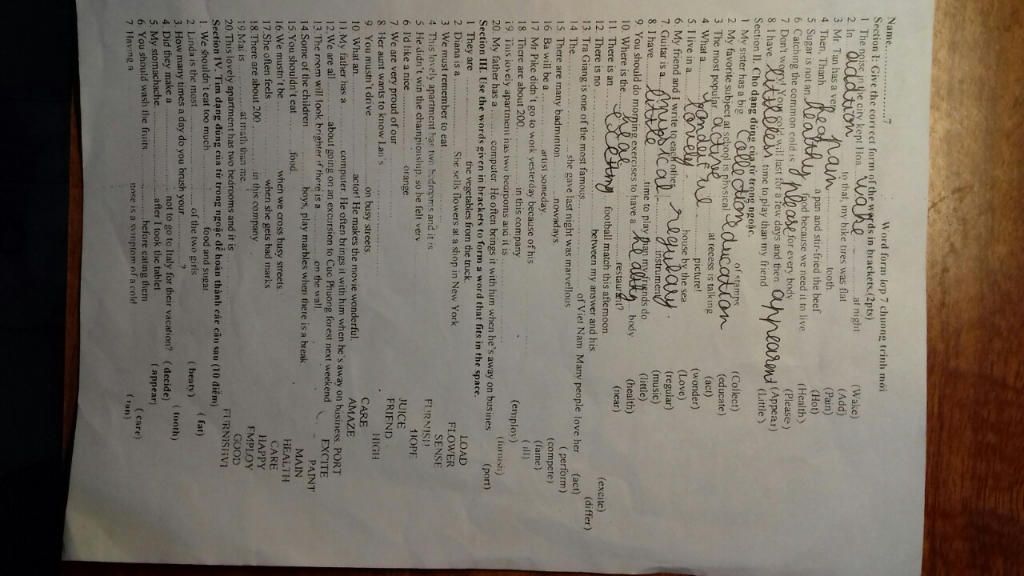 Name............7 Word form top 7 chuong trình mới
Section I: Give the correct form of the words in brackets.(2pts)
1 The noise in the city kept Hoa wake at night (Wake)
2. In addition to that, my bike tires was flat (Add)
3 Mr. Tan has a very tooth (Pain)
4 Then, Thanh heqpam a pan and stir-fried the beef (Hot)
5 Sugar is not an healthly food because we need it to live (Health)
6 Catching the common cold is please for every body (Please)
7 Don't worry. Your cold will last for a few days and then appearent (Appear)
8 I have littless time to play than my friend (Little)
Section II. Cho dạng đúng của từ trong ngoặc.
1 My sister has a big collection of stamps (Collect)
2 My favorite subject at school is physical education (educate)
3 The most popular active at recess is talking (act)
4 What a wonderful picture! (wonder)
5 I live in a lonely house by the sea (Love)
6 My friend and I write to each other regulay. (regular)
7 Guitar is a musical instrument (music)
8 I have little time to play than my friends do (little)
9 You should do morning exercises to have a heality body (health)
10 Where is the restaurant? (near)
11 There is an exciting football match this afternoon (excite)
12 There is no between my answer and his (differ)
13 Tra Giang is one of the most famous of Viet Nam Many people love her (act)
14 The she gave last night was marvellous (perform)
15 There are many badminton nowadays (compete)
16 Ba will be a artist someday (fame)
17 Mr Pike didn't go to work yesterday because of his (ill)
18 There are about 200 in this company (employ)
19 This lovely apartment has two bedrooms and it is (furnish)
20 My father has a computer He often brings it with him when he's away on busines (port)
Section III. Use the words given in brackets to form a word that fits in the space.
1 They are the vegetables from the truck. LOAD
2 Diana is a She sells flowers at a shop in New York FLOWER
3 We must remember to eat SENSE
4 This lovely apartment has two bedrooms and it is FURNISH
5 He didn't win the championship, so he felt very HOPE
6 I'd like a nice orange JUICE
7 We are very proud of our FRIEND
8 Her aunt wants to know Lan's HIGH
9 You mustn't drive on busy streets CARE
10 What an actor! He makes the movie wonderful. AMAZE
11 My father has a computer He often brings it with him when he's away on business. PORT
12 We are all about going on an excursion to Cuc Phuong forest next weekend EXCITE
13 The room will look brighter if there is a on the wall PAINT
14 Some of the children boys, play marbles when there is a break MAIN
15 You shouldn't eat food. HEALTH
16 We mustn't be when we cross busy streets CARE
17 She often feels when she gets bad marks HAPPY
18 There are about 200 in this company EMPLOY
19 Mai is at math than me GOOD
20 This lovely apartment has two bedrooms and it is
Section IV. Tìm dạng đúng của từ trong ngoặc để hoàn thành các câu sau (10 điểm)
1 We shouldn't eat too much food and sugar ( fat)
2 Linda is the most of the two girls ( beaty)
3 How many times a day do you brush your ? ( tooth)
4 Did they make a not to go to Italy for their vacation? ( decide)
5 My stomachache after I took the tablet ( appear)
6 You should wash the fruits before eating them ( care)
7 Having a nose is a symptom of a cold ( run)